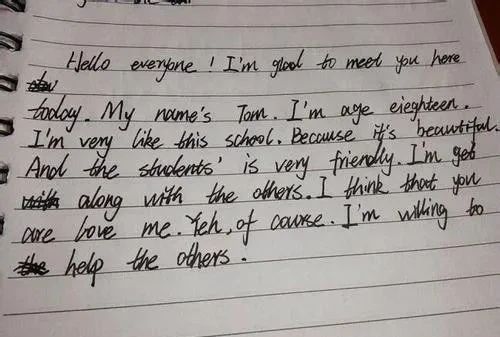 Hello everyone! I'm glad to meet you here
today. My name's Tom. I'm age eieghteen.
I'm very like this school. Because it's beautiful.
And the students' is very friendly. I'm get
along with the others. I think that you
are love me. Yeh, of course. I'm willing to
help the others.